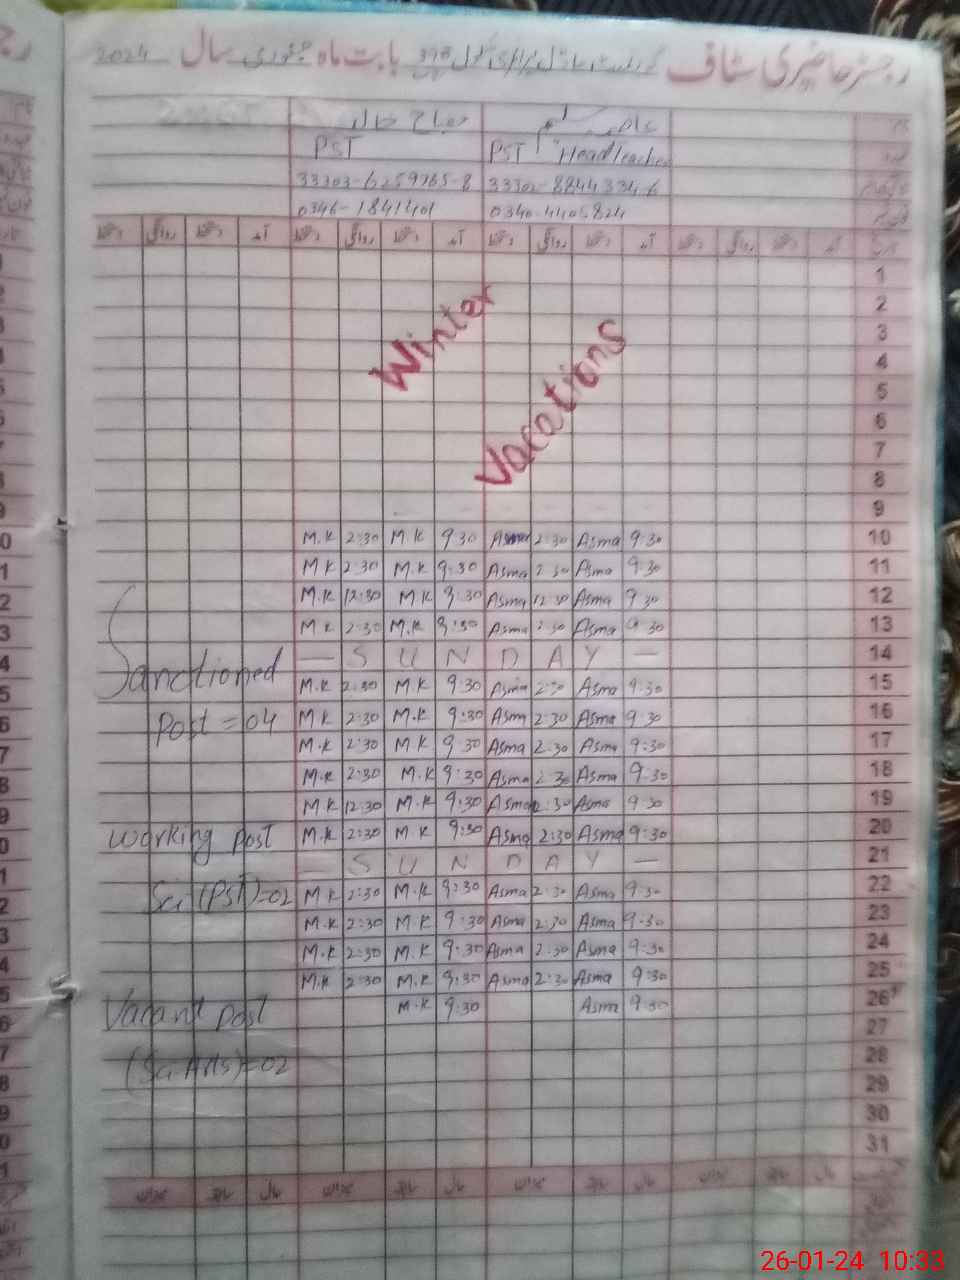 رجسٹر حاضری سٹاف گورنمنٹ ماڈل پرائمری سکول 398 بابت ماہ جنوری سال 2024
عاصمہ سلیم
PST Headteacher PST
33302-8844334-6 33303-6259765-8
0340-4405824 0346-1841401
آمد دستخط روانگی دستخط آمد دستخط روانگی دستخط آمد دستخط روانگی دستخط آمد دستخط
1
2
3
4
5
6
7
8
9
Winter
Vacations
M.K 2:30 M.K 9:30 Asma 2:30 Asma 9:30 10
M.K 2:30 M.K 9:30 Asma 2:30 Asma 9:30 11
M.K 12:30 M.K 9:30 Asma 12:30 Asma 9:30 12
M.K 2:30 M.K 9:30 Asma 2:30 Asma 9:30 13
— S U N D A Y — 14
M.K 2:30 M.K 9:30 Asma 2:30 Asma 9:30 15
M.K 2:30 M.K 9:30 Asma 2:30 Asma 9:30 16
M.K 2:30 M.K 9:30 Asma 2:30 Asma 9:30 17
M.K 2:30 M.K 9:30 Asma 2:30 Asma 9:30 18
M.K 12:30 M.K 9:30 Asma 12:30 Asma 9:30 19
M.K 2:30 M.K 9:30 Asma 2:30 Asma 9:30 20
— S U N D A Y — 21
M.K 2:30 M.K 9:30 Asma 2:30 Asma 9:30 22
M.K 2:30 M.K 9:30 Asma 2:30 Asma 9:30 23
M.K 2:30 M.K 9:30 Asma 2:30 Asma 9:30 24
M.K 2:30 M.K 9:30 Asma 2:30 Asma 9:30 25
M.K 9:30 Asma 9:30 26
27
28
29
30
31
Sanctioned
Post = 04
Working post
Sci (PST)=02
Vacant post
(Sci Arts)=02
26-01-24 10:33